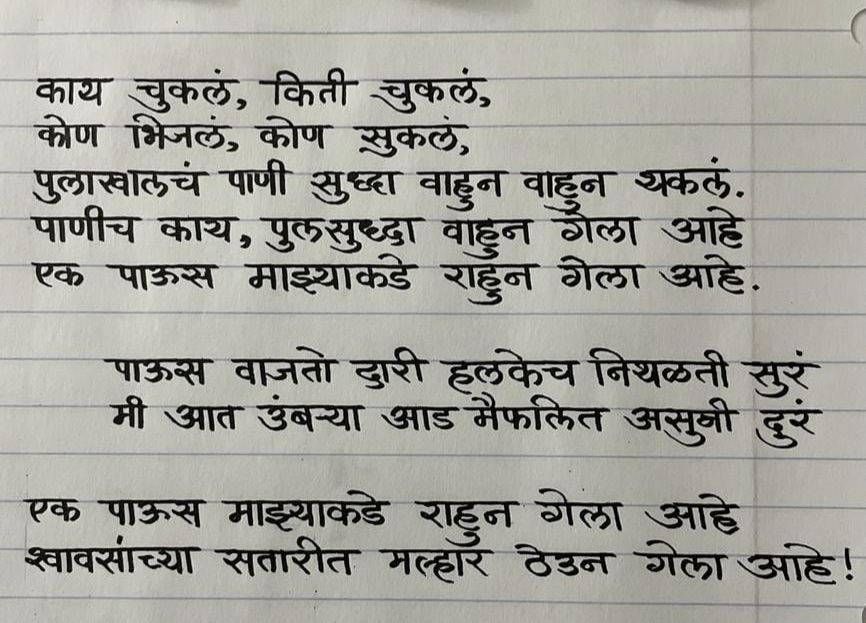 काय चुकलं, किती चुकलं,
कोण भिजलं, कोण सुकलं,
पुलाखालचं पाणी सुध्दा वाहुन वाहुन थकलं.
पाणीच काय, पुलसुध्दा वाहुन गेला आहे
एक पाऊस माझ्याकडे राहुन गेला आहे.
पाऊस वाजतो दारी हलकेच निथळती सुरं
मी आत उंबऱ्या आड मैफलित असुनी दुरं
एक पाऊस माझ्याकडे राहुन गेला आहे
श्वावसांच्या सतारीत मल्हार ठेउन गेला आहे!